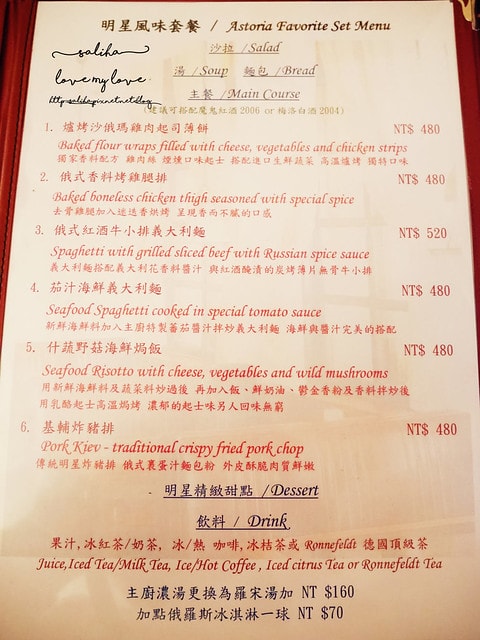 明星風味套餐 / Astoria Favorite Set Menu
saliha
love my love.
沙拉 /Salad
湯 /Soup 麵包 /Bread
主餐 /Main Course
(建議可搭配魔鬼紅酒 2006 or 梅洛白酒 2004)
1. 爐烤沙俄瑪雞肉起司薄餅 NT$ 480
Baked flour wraps filled with cheese, vegetables and chicken strips
獨家香料配方 雞肉絲 煙燻口味起士 搭配進口生鮮蔬菜 高溫爐烤 獨特口味
2. 俄式香料烤雞腿排 NT$ 480
Baked boneless chicken thigh seasoned with special spice
去骨雞腿加入迷迭香烘烤 呈現香而不膩的口感
3. 俄式紅酒牛小排義大利麵 NT$ 520
Spaghetti with grilled sliced beef with Russian spice sauce
義大利麵搭配義大利花香料醬汁 與紅酒醃漬的炭烤薄片無骨牛小排
4. 茄汁海鮮義大利麵 NT$ 480
Seafood Spaghetti cooked in special tomato sauce
新鮮海鮮料加入主廚特製蕃茄醬汁拌炒義大利麵 海鮮與醬汁完美的搭配
5. 什蔬野菇海鮮焗飯 NT$ 480
Seafood Risotto with cheese, vegetables and wild mushrooms
用新鮮海鮮料及蔬菜料炒過後 再加入飯、鮮奶油、鬱金香粉及香料拌炒後
用乳酪起士高溫焗烤 濃郁的起士味另人回味無窮
6. 基輔炸豬排 NT$ 480
Pork Kiev - traditional crispy fried pork chop
傳統明星炸豬排 俄式裹蛋汁麵包粉 外皮酥脆肉質鮮嫩
明星精緻甜點 /Dessert
飲料 / Drink
果汁, 冰紅茶/奶茶, 冰/熱 咖啡, 冰桔茶或 Ronnefeldt 德國頂級茶
Juice,Iced Tea/Milk Tea, Ice/Hot Coffee , Iced citrus Tea or Ronnefeldt Tea
主廚濃湯更換為羅宋湯加 NT $160
加點俄羅斯冰淇淋一球 NT $70